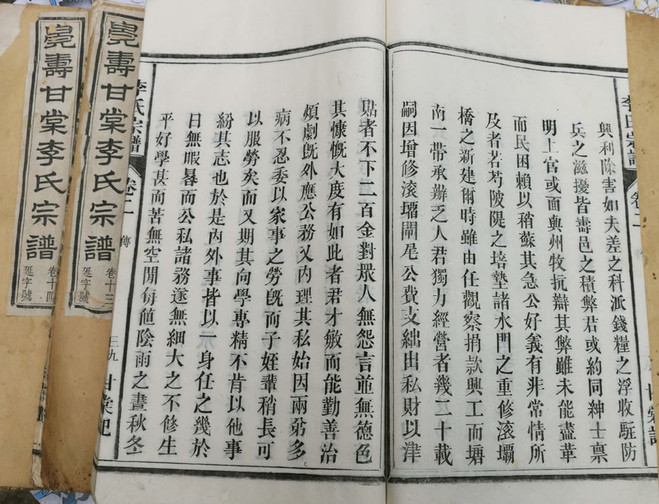 李氏宗譜
卷二
興利除害如夫差之科派錢糧之浮收駐防
兵之滋擾皆壽邑之積弊君或約同紳士稟
明上官或面與州牧抗辯其弊雖未能盡革
而民困賴以稍蘇其急公好義有非常情所
及者若芍陂隄之培墊諸水門之重修滾壩
橋之新建爾時雖由任觀察捐款興工而塘
南一帶承辦乏人君獨力經營者幾二十載
嗣因增修滾壩閘尾公費支絀出私財以津
貼者不下二百金對衆人無怨言並無德色
其慷慨大度有如此者君才敏而能勤善治
煩劇既外應公務又內理其私始因兩弟多
病不忍委以家事之勞既而子姪輩稍長可
以服勞矣而又期其向學專精不肯以他事
紛其志也於是內外事皆以一身任之幾於
日無暇晷而公私諸務遂無細大之不修生
平好學甚而苦無空閒每值陰雨之晝秋冬
李氏宗譜
卷二
傳
三九
甘棠祀
壽甘棠李氏宗譜
卷十三
延字號
壽甘棠李氏宗譜
卷十四
延字號